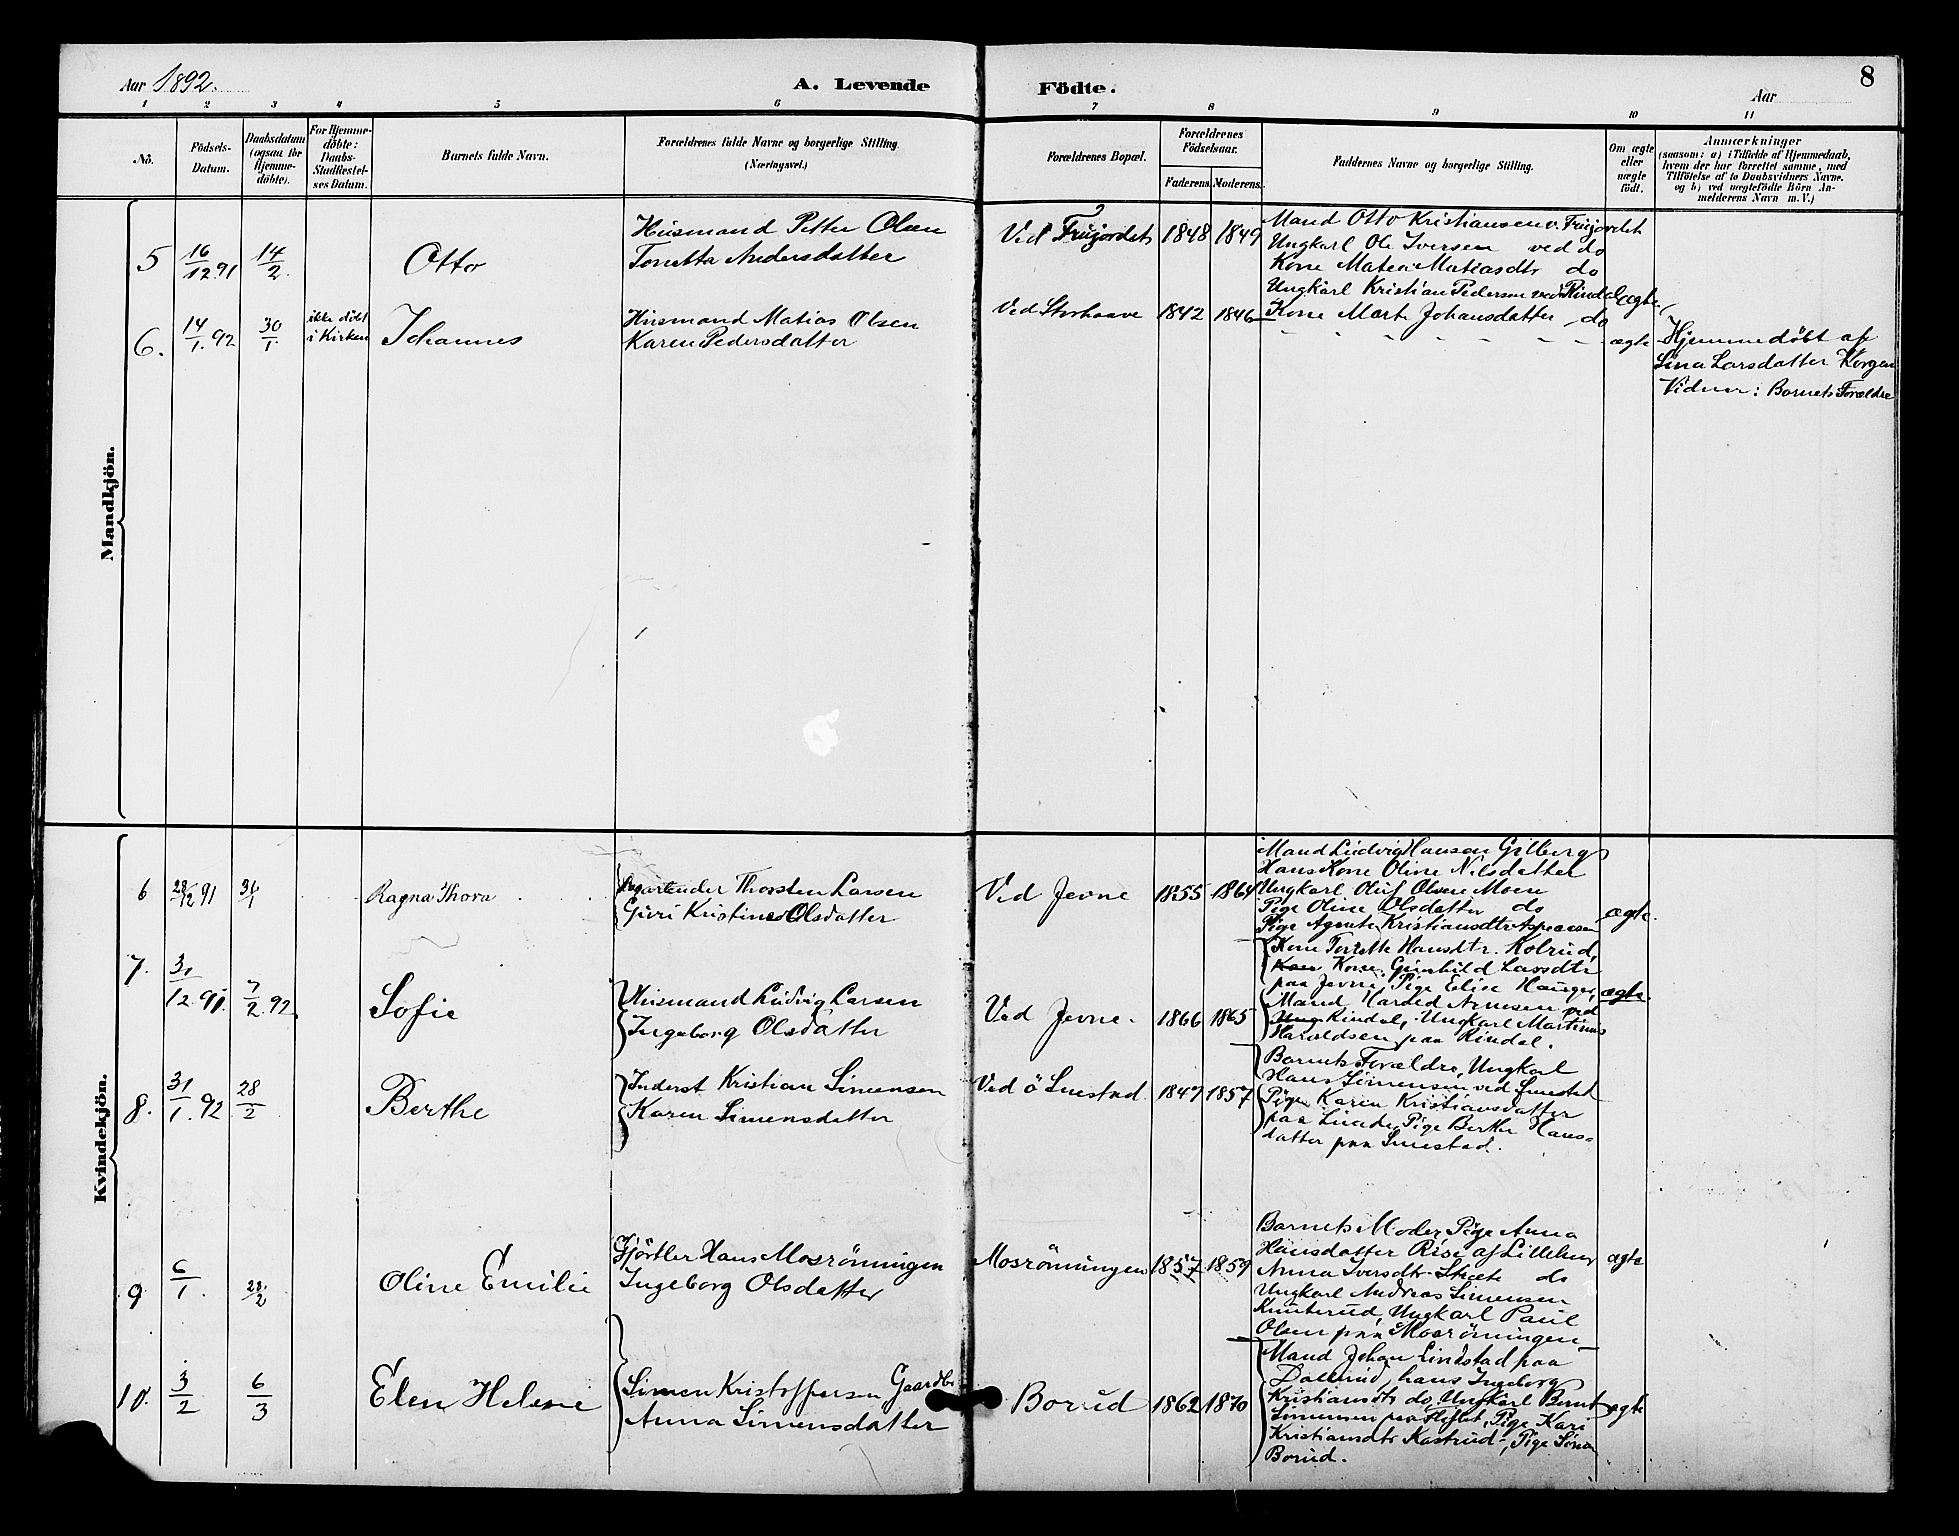 Aar 1892.
A. Levende Födte.
Aar
8
1 2 3 4 5 6 7 8 9 10 11
No.
Födsels-Datum.
Daabsdatum (ogsaa for Hjemme-döbte).
For Hjemme-döbte: Daabs-Stadfæstel-ses Datum.
Barnets fulde Navn.
Forældrenes fulde Navne og borgerlige Stilling. (Næringsvei.)
Forældrenes Bopæl.
Forældrenes Födselsaar.
Faderens. Moderens.
Faddernes Navne og borgerlige Stilling.
Om ægte eller uægte födt.
Anmærkninger
(saasom: a) i Tilfælde af Hjemmedaab,
hvem der har forrettet samme, med
Tilföielse af to Daabsvidners Navne.
og b) ved uægtefödte Börn An-
melderens Navn m. V.)
Mandkjön.
5
16/12 91
14/2.
Otto
Husmand Petter Olsen
Tonetta Andersdatter
Ved Frujordet
1848 1849
Mand Otto Kristiansen v. Frujordet
Ungkarl Ole Iversen ved do
Kone Matea Matiasdtr do
Ungkarl Kristian Pedersen ved Rindal
Kone Marte Johansdatter do
ægte
6.
14/1. 92
30/1
ikke döbt
i Kirken
Johannes
Husmand Matias Olsen
Karen Pedersdatter
Ved Storhaave
1842 1846
- - - - - - - -
ægte
Hjemmedöbt af
Lina Larsdatter Korgen
Vidner: Barnets Forældre
Kvindekjön.
6
28/12 91
31/1
Ragna Thora
Thorsten Larsen
Guri Kristine Olsdatter
Ved Jevne
1855 1864
Mand Ludvig Hansen Gilberg
Hans Kone Oline Nilsdatter
Ungkarl Oluf Olsen Moen
Pige Oline Olsdatter do
Pige Agnete Kristiansdtr
ægte.
7.
31/12. 91.
7/2. 92.
Sofie
Husmand Ludvig Larsen
Ingeborg Olsdatter
Ved Jevne.
1866 1865
Kone Tonette Hansdtr. Kolrud,
Kone Gunhild Larsdtr
paa Jevne, Pige Elise Hauger,
Mand Harald Arnesen ved
Rindal, Ungkarl Martinus
Haraldsen paa Rindal.
ægte.
8.
31/1. 92
28/2
Berthe
Inderst Kristian Simensen
Karen Simensdatter
Ved ö Smestad
1847 1857
Barnets Forældre, Ungkarl
Hans Simensen ved Smestad
Pige Karen Kristiansdatter
paa Linde, Pige Berthe Hans-
datter paa Smestad.
9
6/1.
28/2
Oline Emilie
Gjörtler Hans Mosrönningen
Ingeborg Olsdatter
Mosrönningen
1857 1859
Barnets Moder, Pige Anna
Hansdatter Rise af Lillehmr
Anna Iversdtr do
Ungkarl Andreas Simensen
Knuterud, Ungkarl Paul
Olsen paa Mosrönningen
ægte
10.
3/2
6/3
Elen Helene
Simen Kristoffersen Gaardbr
Anna Simensdatter
Borud
1862 1870
Mand Johan Lindstad paa
Dallerud, hans Ingeborg
Kristiansdtr do, Ungkarl Bernt
Simensen paa Pige Kari
Kristiansdtr Kastrud, Pige
Borud.
ægte